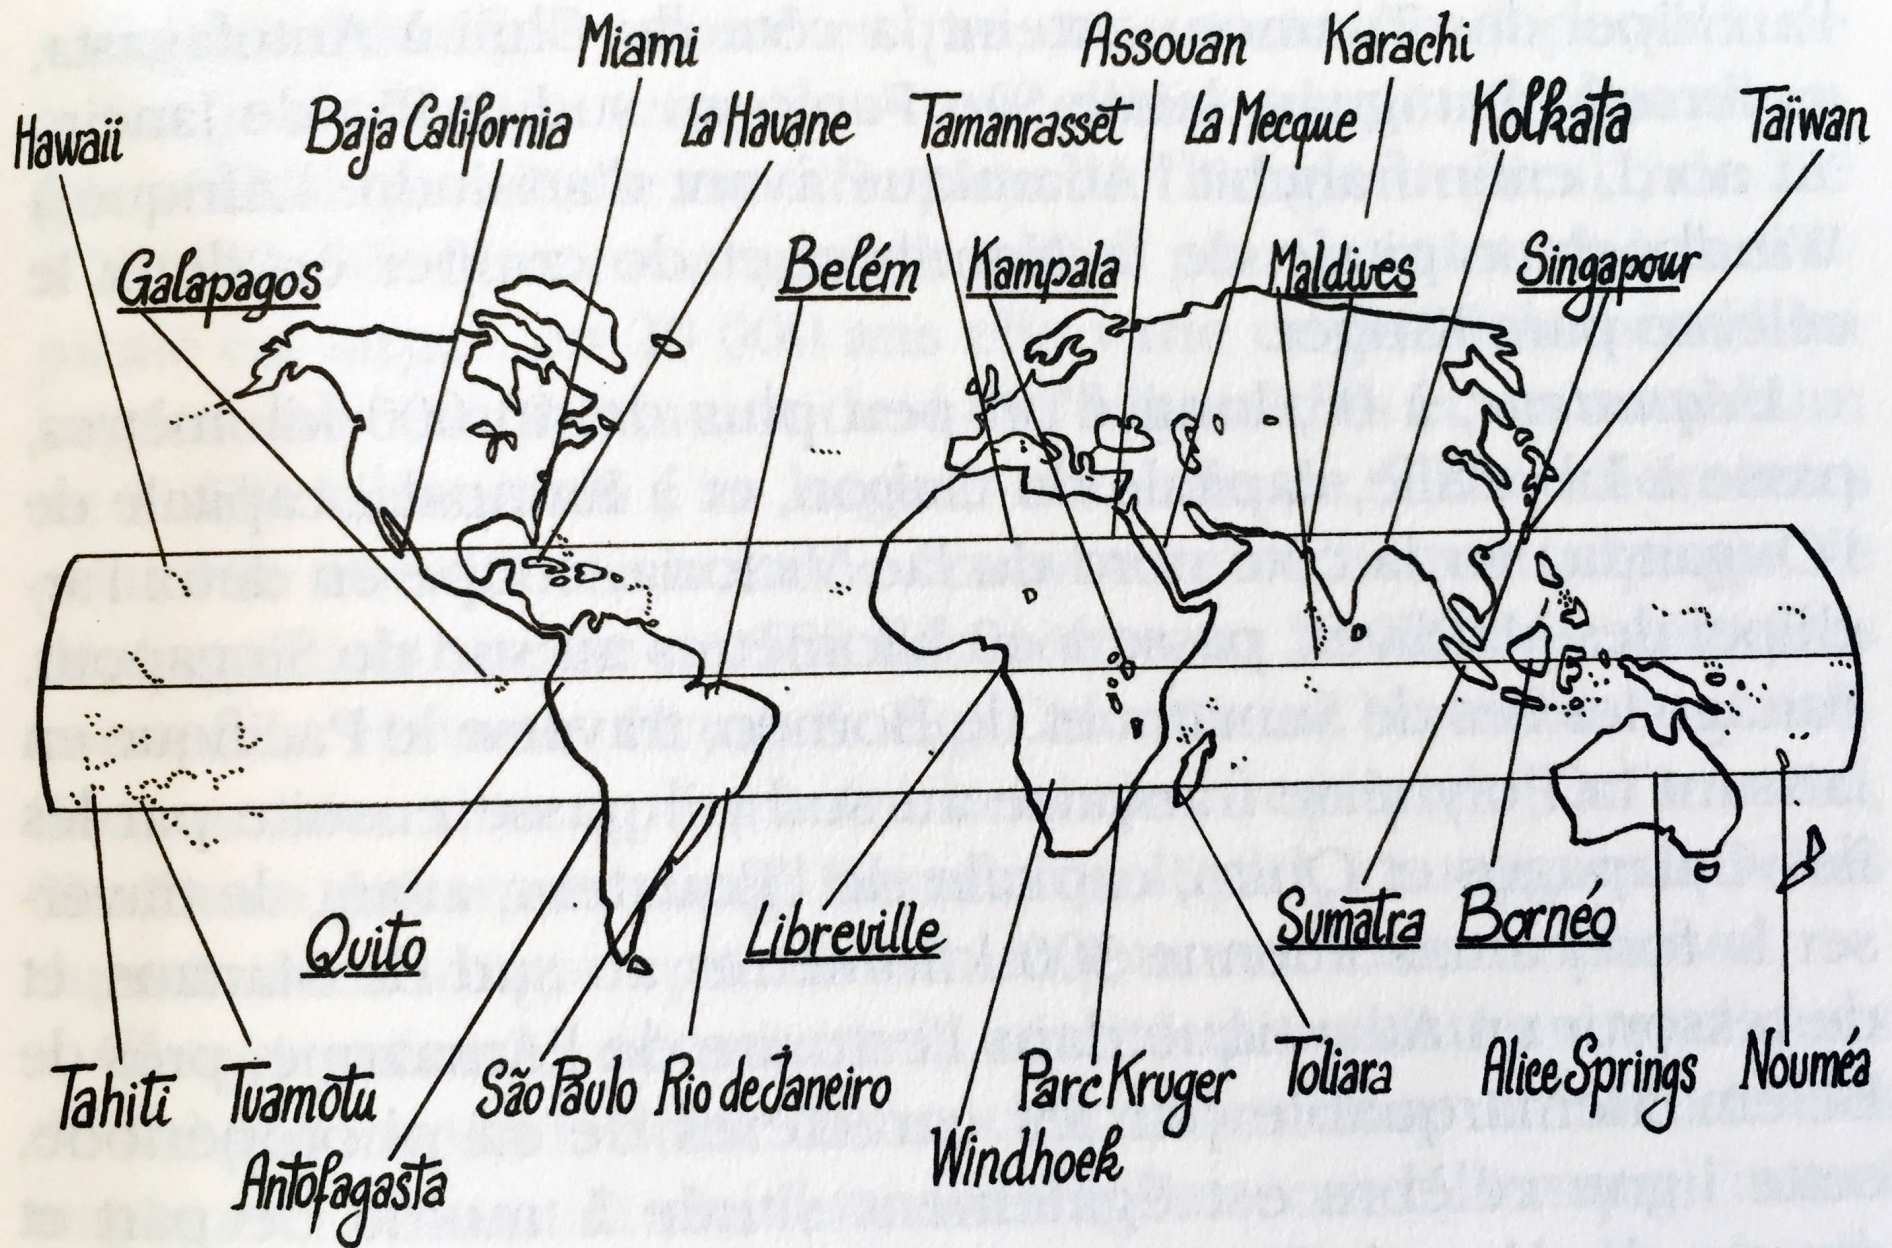 Miami
Assouan
Karachi
Hawaii
Baja California
La Havane
Tamanrasset
La Mecque
Kolkata
Taïwan
Galapagos
Belém
Kampala
Maldives
Singapour
Quito
Libreville
Sumatra
Bornéo
Tahiti
Tuamotu
São Paulo
Rio de Janeiro
Parc Kruger
Toliara
Alice Springs
Nouméa
Antofagasta
Windhoek